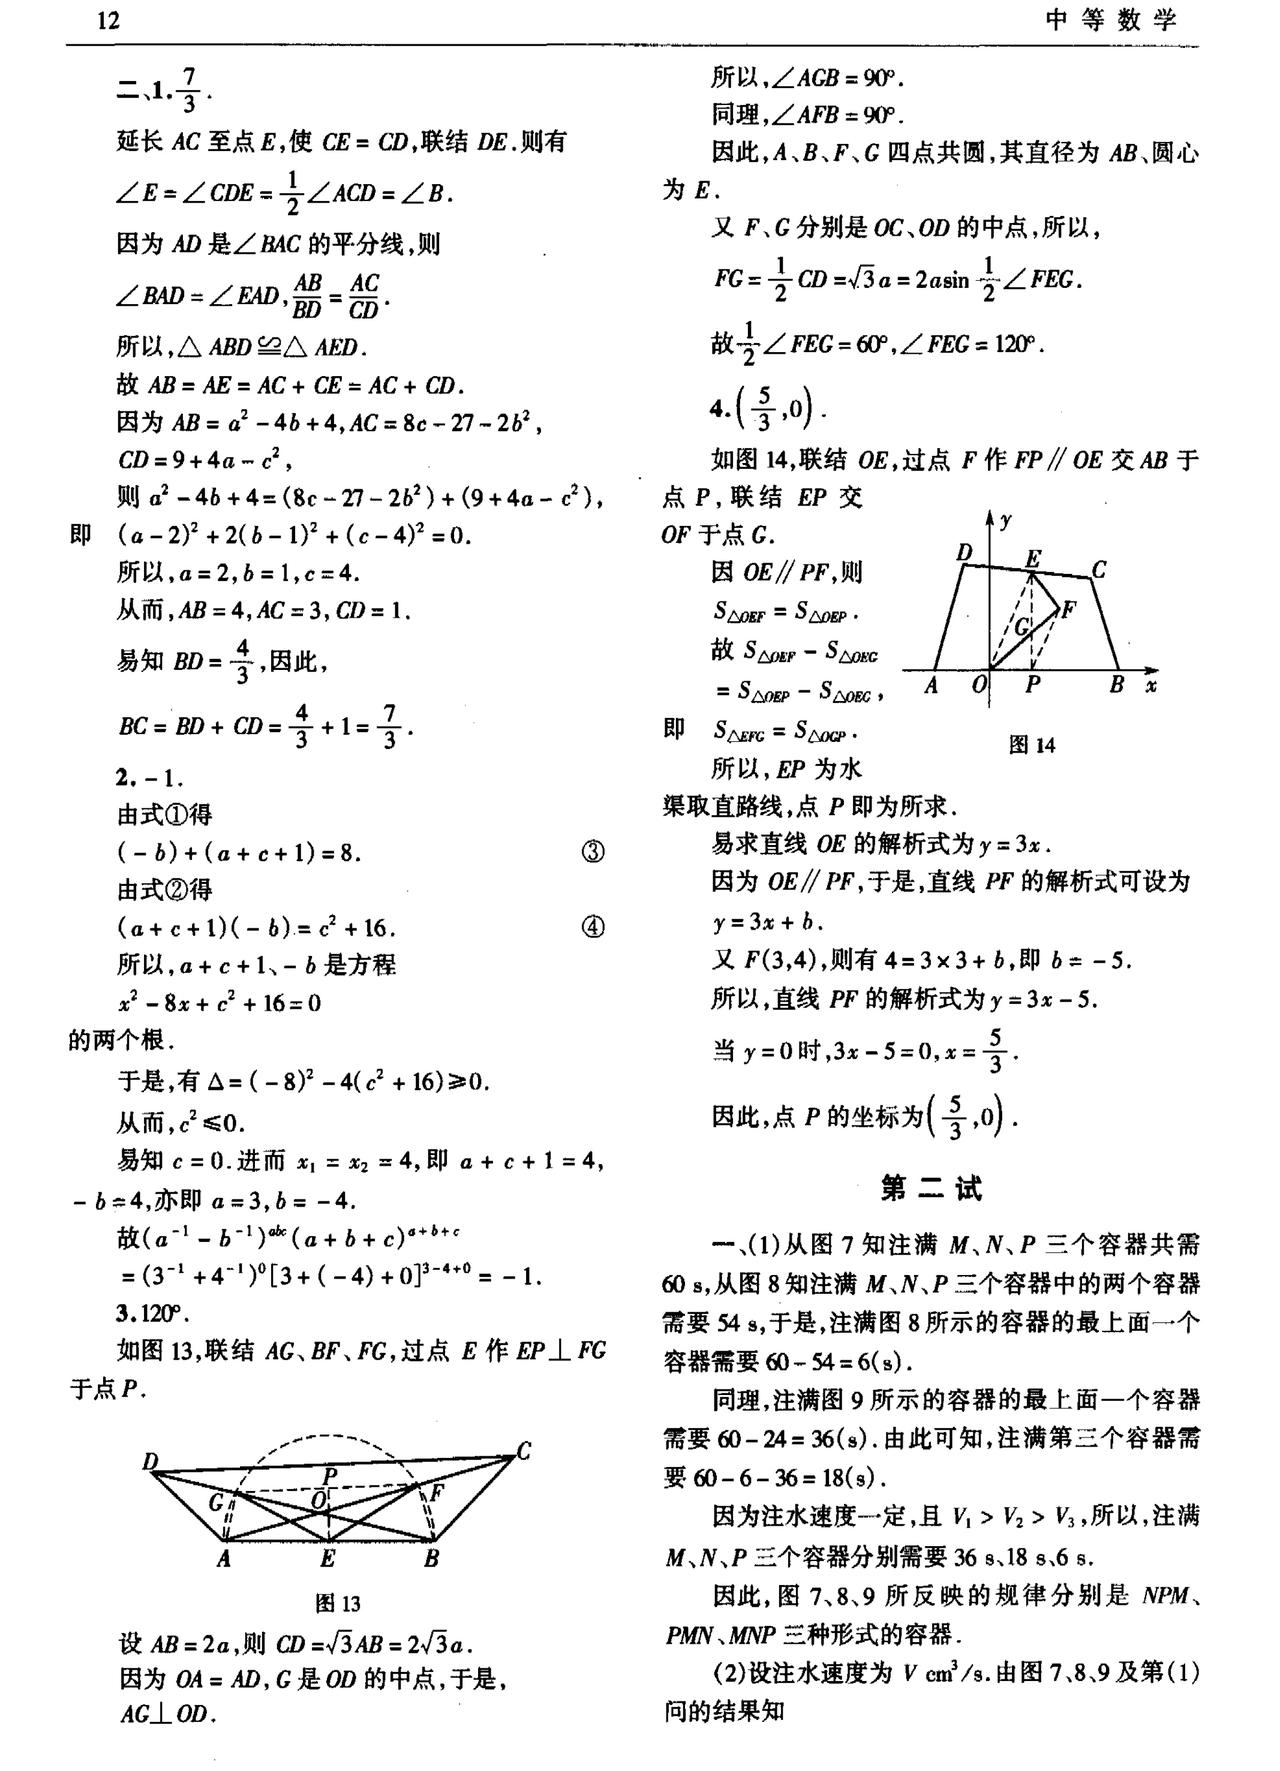 12
中等数学
二、1. 7/3.
延长 AC 至点 E,使 CE = CD,联结 DE.则有
∠E = ∠CDE = 1/2 ∠ACD = ∠B.
因为 AD 是∠BAC 的平分线,则
∠BAD = ∠EAD, AB/BD = AC/CD.
所以,△ABD≌△AED.
故 AB = AE = AC + CE = AC + CD.
因为 AB = a² - 4b + 4, AC = 8c - 27 - 2b²,
CD = 9 + 4a - c²,
则 a² - 4b + 4 = (8c - 27 - 2b²) + (9 + 4a - c²),
即 (a - 2)² + 2(b - 1)² + (c - 4)² = 0.
所以, a = 2, b = 1, c = 4.
从而, AB = 4, AC = 3, CD = 1.
易知 BD = 4/3,因此,
BC = BD + CD = 4/3 + 1 = 7/3.
2. - 1.
由式①得
(- b) + (a + c + 1) = 8. ③
由式②得
(a + c + 1)(- b) = c² + 16. ④
所以, a + c + 1、- b 是方程
x² - 8x + c² + 16 = 0
的两个根.
于是,有 Δ = (- 8)² - 4(c² + 16) ≥ 0.
从而, c² ≤ 0.
易知 c = 0.进而 x₁ = x₂ = 4,即 a + c + 1 = 4,
- b = 4,亦即 a = 3, b = - 4.
故(a⁻¹ - b⁻¹)^abc (a + b + c)^a+b+c
= (3⁻¹ + 4⁻¹)⁰[3 + (- 4) + 0]^3-4+0 = - 1.
3. 120°.
如图 13,联结 AG、BF、FG,过点 E 作 EP⊥FG
于点 P.
D
C
P
G
O
F
A
E
B
图 13
设 AB = 2a,则 CD = √3AB = 2√3a.
因为 OA = AD, G 是 OD 的中点,于是,
AG⊥OD.
所以,∠AGB = 90°.
同理,∠AFB = 90°.
因此, A、B、F、G 四点共圆,其直径为 AB、圆心
为 E.
又 F、G 分别是 OC、OD 的中点,所以,
FG = 1/2 CD = √3a = 2asin 1/2 ∠FEG.
故 1/2 ∠FEG = 60°,∠FEG = 120°.
4. (5/3, 0).
如图 14,联结 OE,过点 F 作 FP∥OE 交 AB 于
点 P,联结 EP 交
OF 于点 G.
因 OE∥PF,则
S△OEF = S△OEP.
故 S△OEF - S△OEG
= S△OEP - S△OEG,
即 S△EFG = S△OGP.
所以, EP 为水
y
D
E
C
F
G
A
O
P
B
x
图 14
渠取直路线,点 P 即为所求.
易求直线 OE 的解析式为 y = 3x.
因为 OE∥PF,于是,直线 PF 的解析式可设为
y = 3x + b.
又 F(3,4),则有 4 = 3 × 3 + b,即 b = - 5.
所以,直线 PF 的解析式为 y = 3x - 5.
当 y = 0 时, 3x - 5 = 0, x = 5/3.
因此,点 P 的坐标为(5/3, 0).
第二试
一、(1)从图 7 知注满 M、N、P 三个容器共需
60 s,从图 8 知注满 M、N、P 三个容器中的两个容器
需要 54 s,于是,注满图 8 所示的容器的最上面一个
容器需要 60 - 54 = 6(s).
同理,注满图 9 所示的容器的最上面一个容器
需要 60 - 24 = 36(s).由此可知,注满第三个容器需
要 60 - 6 - 36 = 18(s).
因为注水速度一定,且 V₁ > V₂ > V₃,所以,注满
M、N、P 三个容器分别需要 36 s、18 s、6 s.
因此,图 7、8、9 所反映的规律分别是 NPM、
PMN、MNP 三种形式的容器.
(2)设注水速度为 V cm³/s.由图 7、8、9 及第(1)
问的结果知